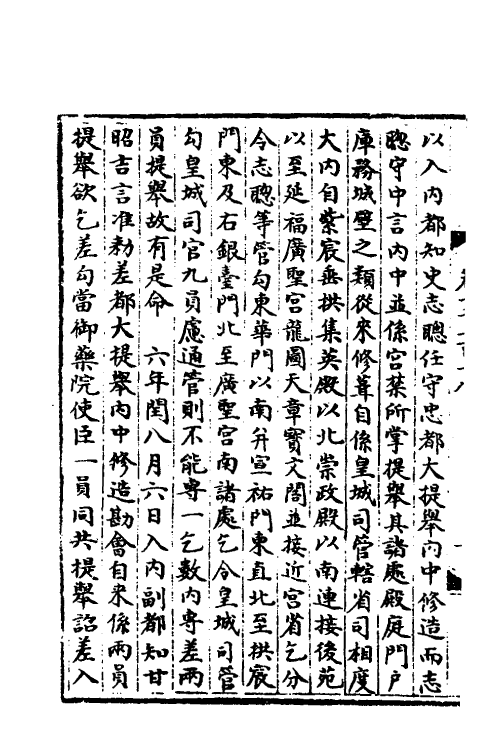 以入内都知史志聰任守忠都大提舉内中修造而志
聰守中言内中並係宫禁所掌提舉其諸處殿庭門户
庫務城壁之類從來修葺自係皇城司管轄省司相度
大内自紫宸垂拱集英殿以北崇政殿以南連接後苑
以至延福廣聖宫龍圖天章寳文閣並接近宫省乞分
今志聰等管勾東華門以南并宣祐門東直北至拱宸
門東及右銀臺門北至廣聖宫南諸處乞令皇城司管
勾皇城司官九員慮通管則不能專一乞數内專差兩
員提舉故有是命　六年閏八月六日入内副都知甘
昭吉言准勅差都大提舉内中修造勘會自來係兩員
提舉欲乞差勾當御藥院使臣一員同共提舉詔差入